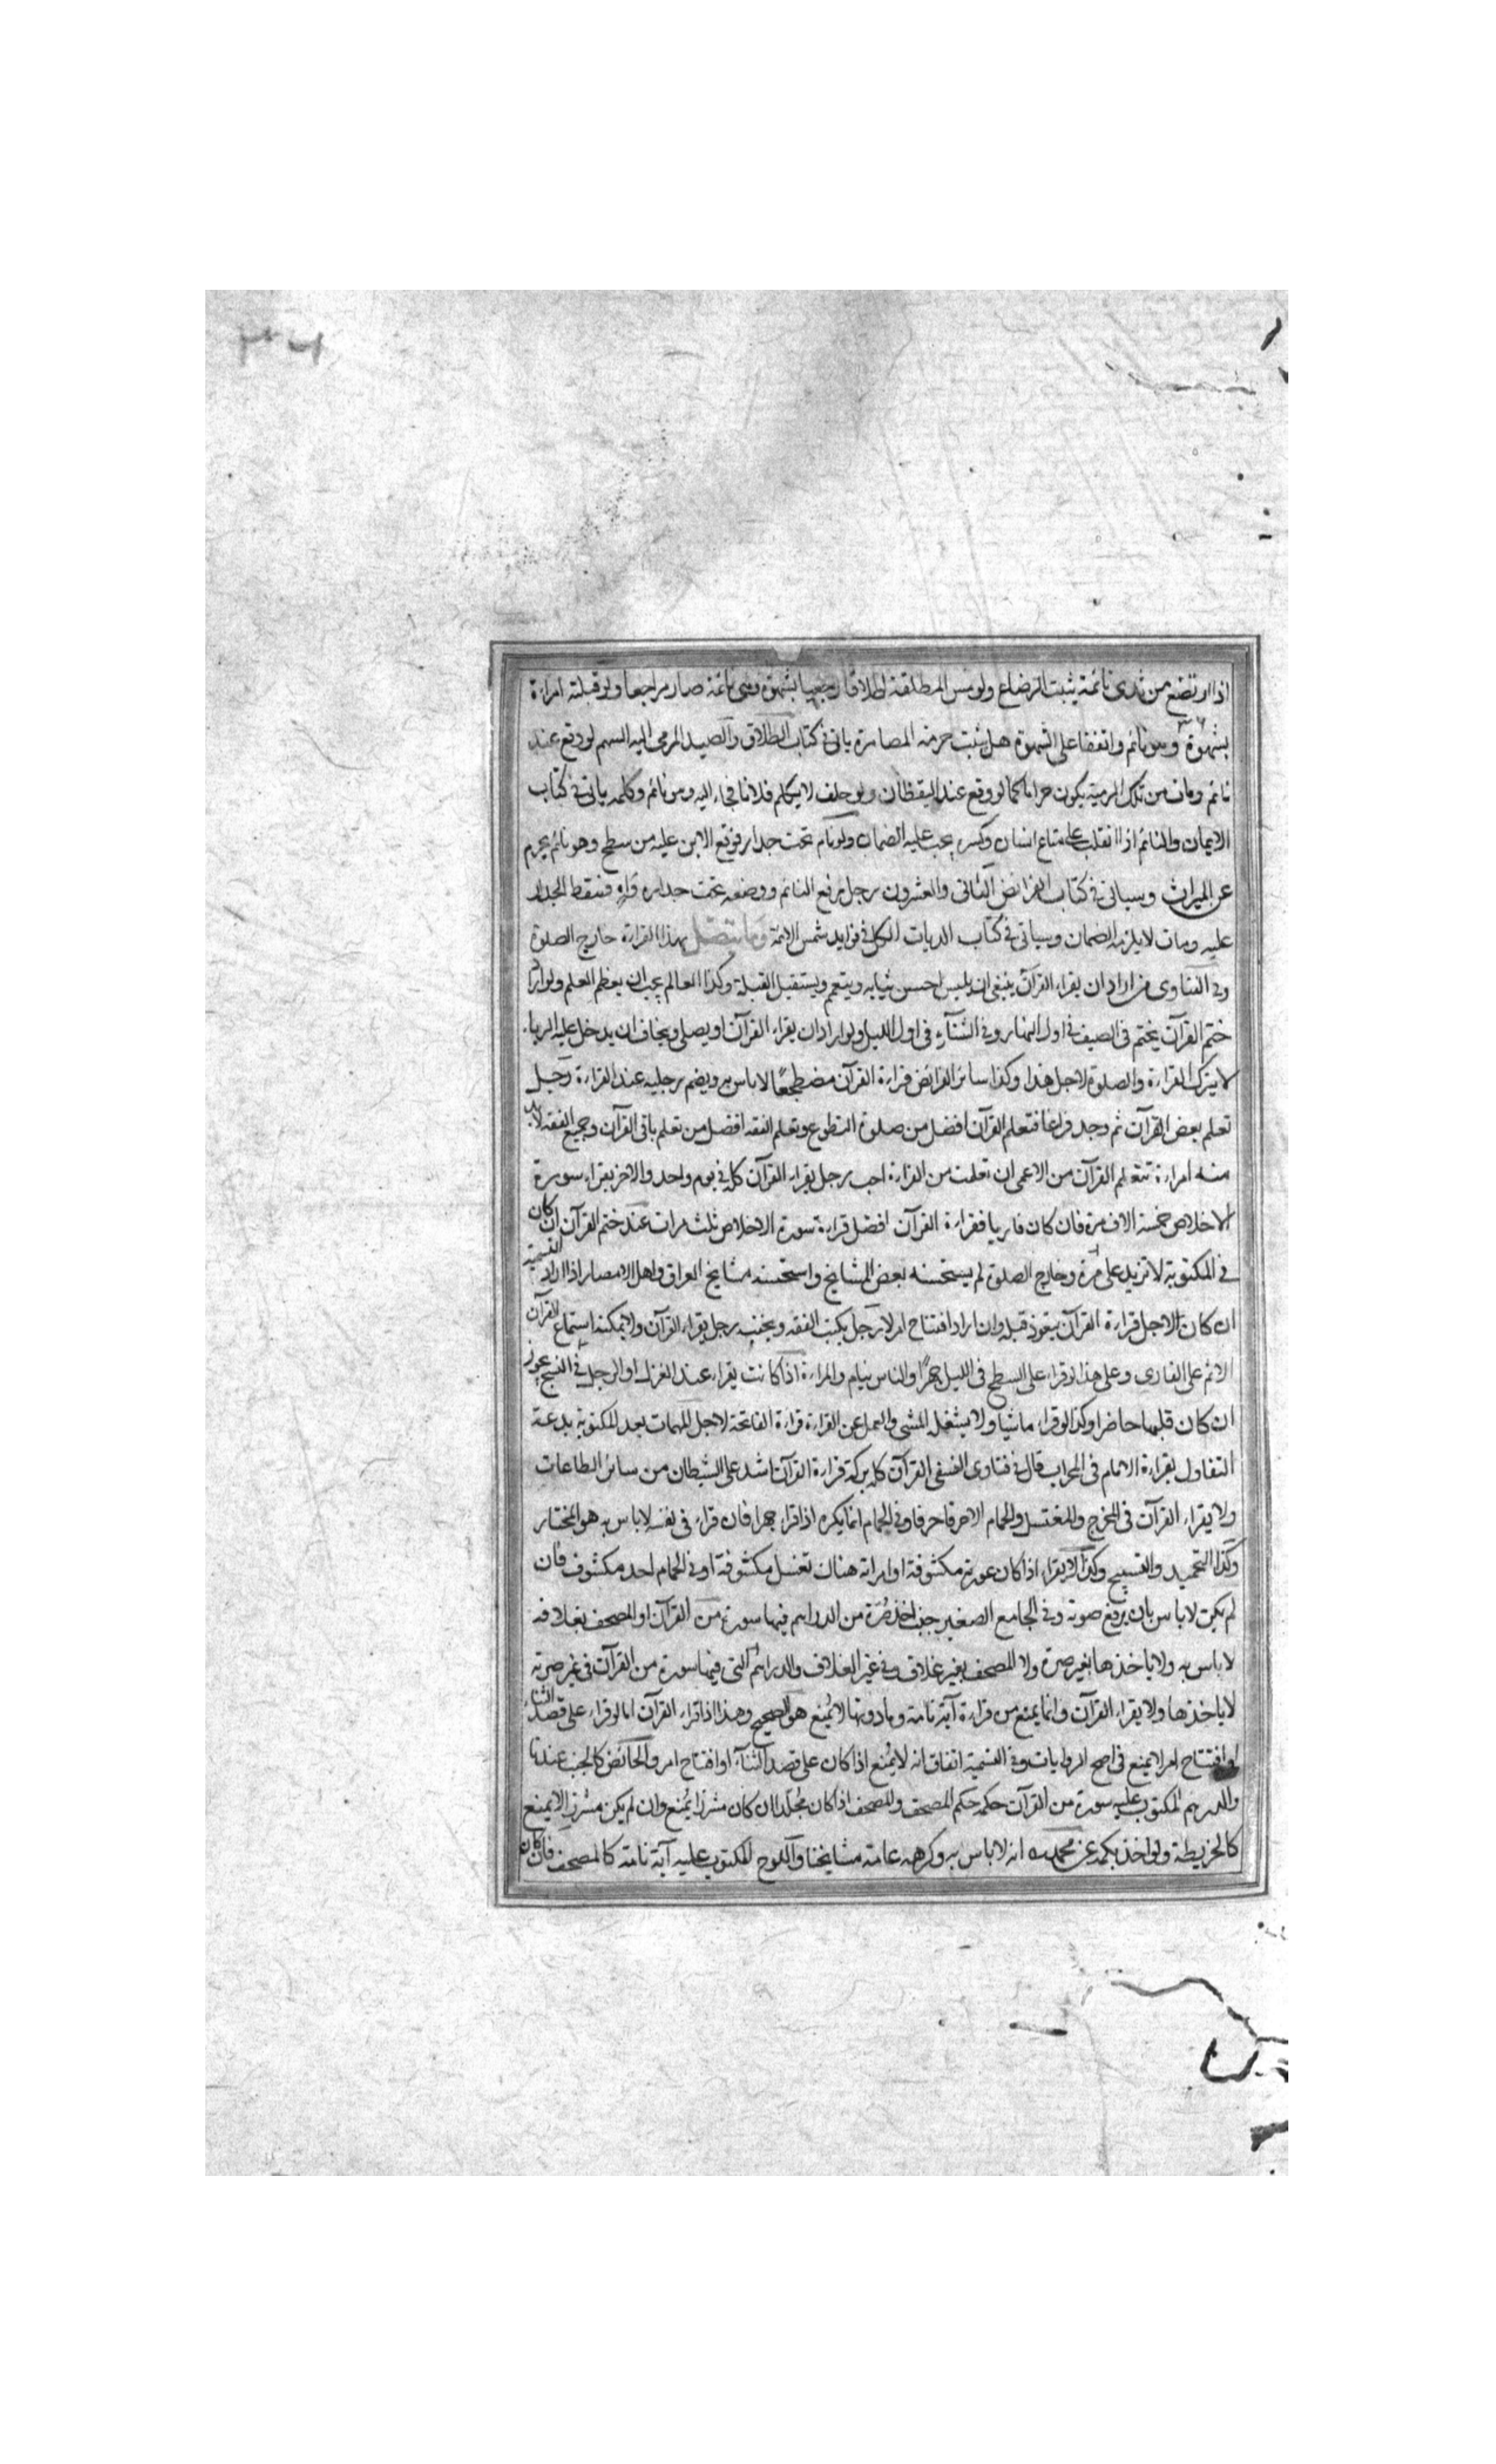 ۳۶
اذا ارتضع من ثدى نائمة يثبت الرضاع ولو مس المطلقة طلاقا رجعيا بشهوة وهى نائمة صار مراجعا ولو قبلته امراة
۳۶
بشهوة وهو نائم واتفقا على الشهوة هل يثبت حرمة المصاهرة ياتى فى كتاب الطلاق والصيد المرمى اليه السهم لو وقع عند
نائم ومات من تلك الرمية يكون حراما كما لو وقع عند اليقظان ولو حلف لا يكلم فلانا فجاء اليه وهو نائم وكلمه ياتى فى كتاب
الايمان والنائم اذا انقلب على متاع انسان وكسره يجب عليه الضمان ولو نام تحت جدار فوقع الابن عليه من سطح وهو نائم يحرم
عن الميراث وسياتى فى كتاب الفرائض الثانى والعشرون رجل رفع النائم ووضعه تحت جداره واه فسقط الجدار
عليه ومات لا يلزمه الضمان وسياتى فى كتاب الديات الكل فى فوايد شمس الائمة وما يتصل بهذا القراءة خارج الصلوة
وفى الفتاوى من اراد ان يقراء القرآن ينبغى ان يلبس احسن ثيابه ويتعمم ويستقبل القبلة وكذا العالم يجب ان يعظم العلم ولو اراد
ختم القرآن يختم فى الصيف فى اول النهار وفى الشتآء فى اول الليل ولو اراد ان يقراء القرآن او يصلى ويخاف ان يدخل عليه الرياء
لا يترك القراءة والصلوة لاجل هذا وكذا سائر الفرائض قراءة القرآن مضطجعًا لا باس به ويضم رجليه عند القراءة رجل
تعلم بعض القرآن ثم وجد فراغا فتعلم القرآن افضل من صلوة التطوع وتعلم الفقه افضل من تعلم باقى القرآن وجميع الفقه لابد
منه امراءة تتعلم القرآن من الاعمى ان تعلمت من القراءة احب رجل يقراء القرآن كله فى يوم واحد والاخر يقراء سورة
الاخلاص خمسة الاف مرة فان كان قاريا فقراءة القرآن افضل قراءة سورة الاخلاص ثلث مرات عند ختم القرآن ان كان
فى المكتوبة لا تزيد على مرة وخارج الصلوة لم يستحسنه بعض المشايخ واستحسنه مشايخ العراق واهل الامصار اذا اراد التسمية
ان كان لاجل قراءة القرآن يتعوذ قبله وان اراد افتتاح امر لا رجل يكتب الفقه وبجنبه رجل يقراء القرآن ولا يمكنه استماع القرآن
الاثم على القارى وعلى هذا لو قراء على السطح فى الليل جهرًا والناس نيام والمراءة اذا كانت يقراء عند الغزل او الرجل فى النسج يجوز
ان كان قلبها حاضرا وكذا لو قراء ماشيا ولا يشغله المشى والعمل عن القراءة قراءة الفاتحة لاجل المهمات بعد المكتوبة بدعة
التفاول بقراءة الامام فى المحراب قال فى فتاوى النسفى القرآن كله بركة قراءة القرآن اشد على الشيطان من سائر الطاعات
ولا يقراء القرآن فى المخرج والمغتسل والحمام الا حرفا حرفا وفى الحمام انما يكره اذا قراء جهرا فان قراء فى نفسه لا باس به هو المختار
وكذا التحميد والتسبيح وكذا لا يقراء اذا كان عورته مكشوفة او امراته هناك تغتسل مكشوفة او فى الحمام احد مكشوف فان
لم يكن لا باس بان يرفع صوته وفى الجامع الصغير جنب اخذ صُرّة من الدراهم فيها سورة من القرآن او المصحف بغلافه
لا باس به ولا ياخذها بغير صرة ولا المصحف بغير غلاق وفى غير الغلاف والدراهم التى فيها سورة من القرآن فى غير صرته
لا ياخذها ولا يقراء القرآن وانما يمنع من قراءة آية تامة وما دونها لا يمنع هو الصحيح وهذا اذا قراء القرآن اما لو قراء على قصد الثناء
او افتتاح امر لا يمنع فى اصح الروايات وفى التسمية اتفاق انه لا يُمنع اذا كان على قصد الثنآء او افتتاح امر والحائض كالجنب عندنا
والدرهم المكتوب عليه سورة من القرآن حكمه حكم المصحف والمصحف اذا كان مُجلّدا ان كان مشرزا يُمنع وان لم يكن مشرزا لا يمنع
كالخريطة ولو اخذ بكمه عن محمد انه لا باس به وكرهه عامة مشايخنا واللوح المكتوب عليه آية تامة كالمصحف فان كان